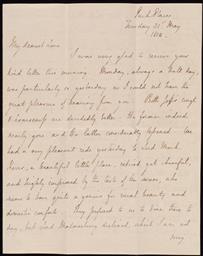 Park Place
Tuesday 21st May
1850.
My dearest
I was very glad to receive your
kind letter this morning. Monday, always a dull day,
was particularly so yesterday as I could not have the
great pleasure of hearing from you. Both Jeff's cough
& Vanescourt's are decidedly better. the former indeed
nearly gone and the latter considerably lessened. We
had a very pleasant ride yesterday to Lord
a beautiful little place, retired yet cheerful,
and highly improved by the taste of the owner, who
seems to have quite a genius for rural beauty and
domestic comfort. They pressed us to dine there to
day, but Lord declined, which I am not
sorry